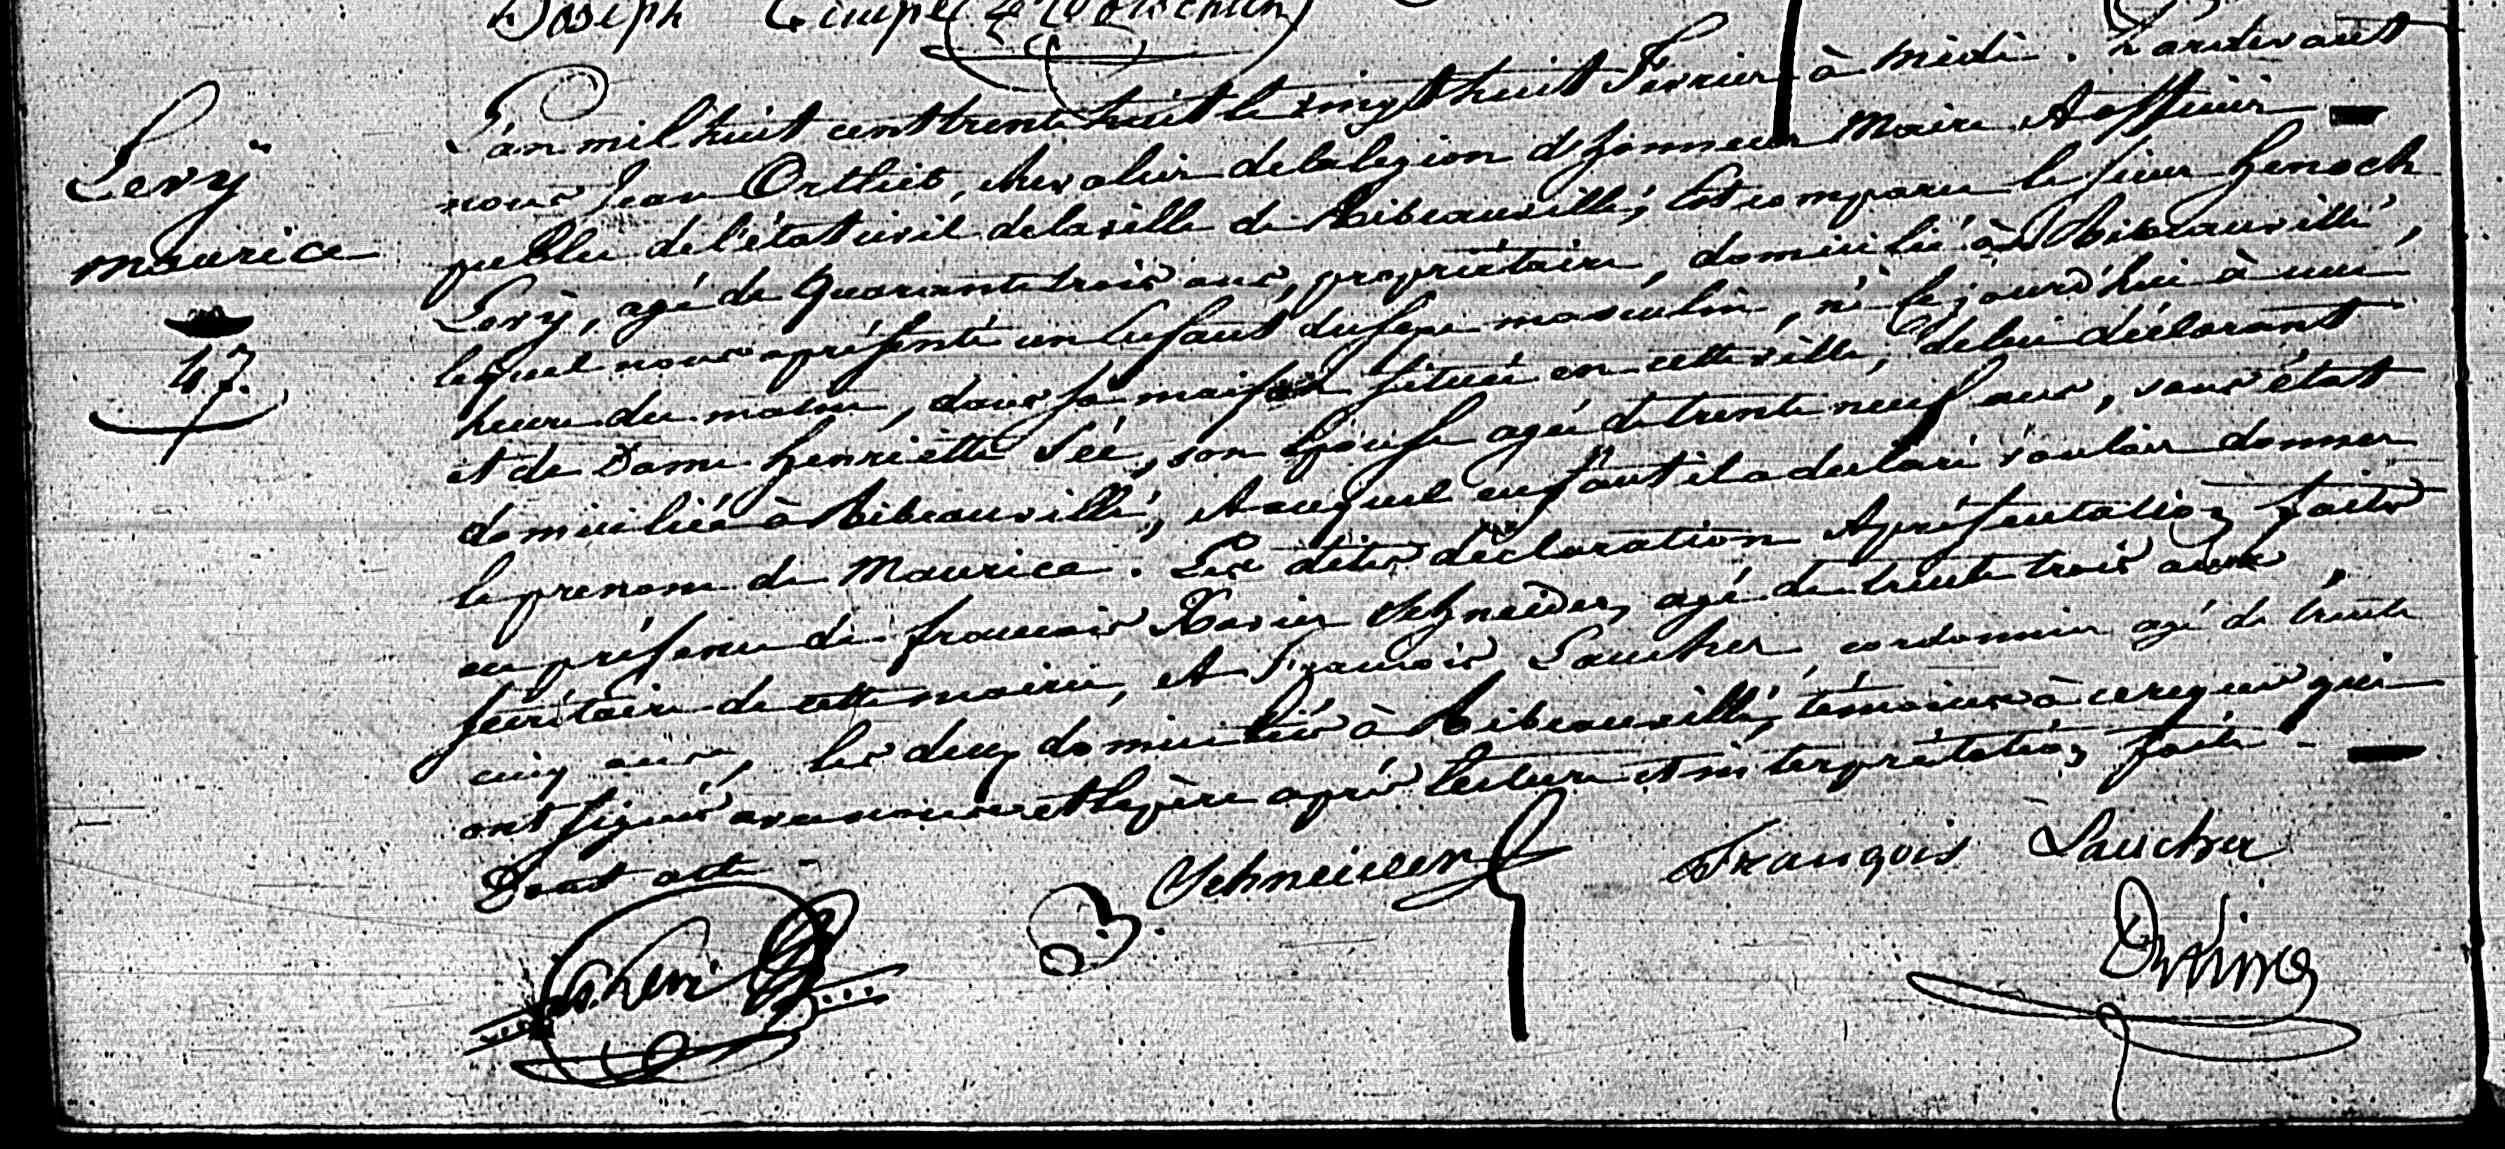 Joseph
L'an mil huit cent trente huit le vingt huit Fevrier à midi. Pardevant
Levÿ
nous Jean Ortlieb, chevalier de la legion d'honneur Maire et officier
maurice
public de l'état civil de la ville de Ribeauvillé, Est comparu le sieur henoch
47.
Levÿ, agé de quarante trois ans, propriétaire, domicilié à Ribeauvillé,
lequel nous a présenté un Enfant du sexe masculin, né cejourd'hui à une
heure du matin, dans sa maison située en cette ville, de lui déclarant
et de Dame henriette Sée, son Epouse agée de trente neuf ans, sans état
domiciliée à Ribeauvillé, et auquel enfant il a declaré vouloir donner
le prenom de Maurice. Les dites déclaration et présentation faites
en présence de francois Xavier Schneider, agé de trente trois ans,
secrétaire de cette mairie, et François Laucher cordonnier agé de trente
cinq ans, les deux domiciliés à Ribeauvillé, témoins à ce requis qui
ont signé avec nous et le père après lecture et interprétation faite.
Dont acte
Schneider
François Laucher
Levi